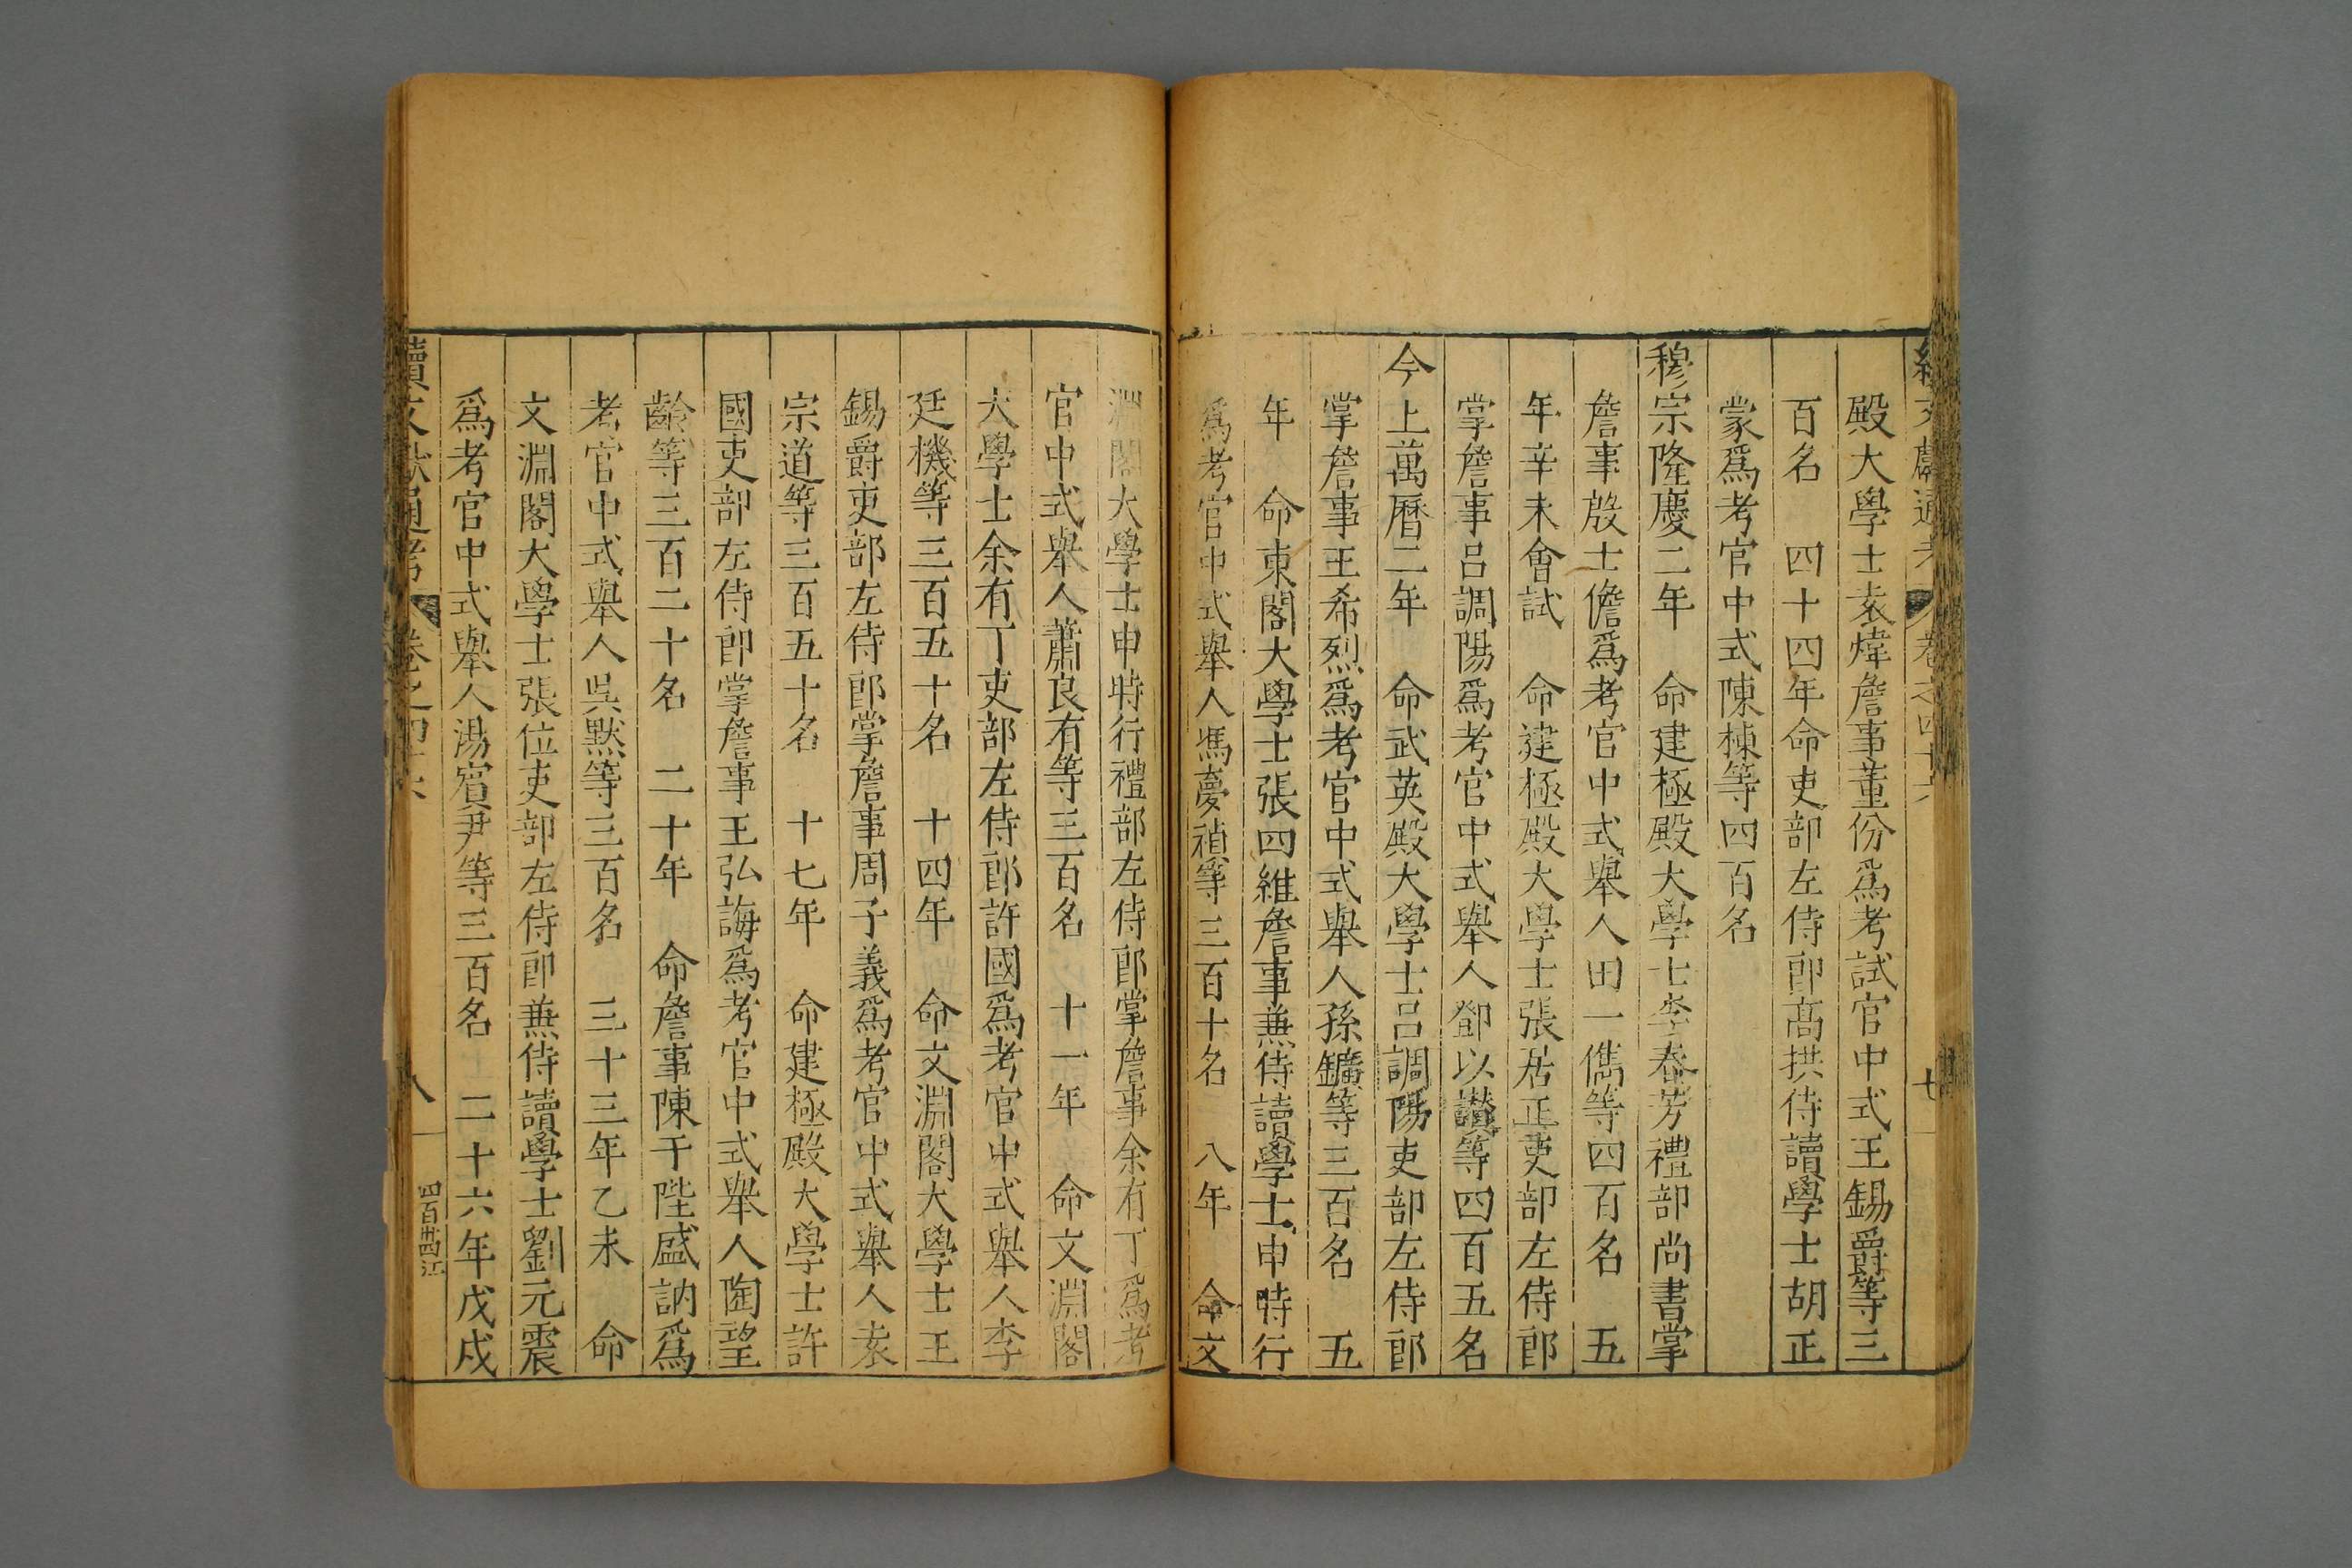 續文獻通考 卷之四十六 七
殿大學士袁煒詹事董份爲考試官中式王錫爵等三
百名 四十四年命吏部左侍郎高拱侍讀學士胡正
蒙爲考官中式陳棟等四百名
穆宗隆慶二年 命建極殿大學士李春芳禮部尚書掌
詹事殷士儋爲考官中式舉人田一儁等四百名 五
年辛未會試 命建極殿大學士張居正吏部左侍郎
掌詹事呂調陽爲考官中式舉人鄧以讃等四百五名
今上萬曆二年 命武英殿大學士呂調陽吏部左侍郎
掌詹事王希烈爲考官中式舉人孫鑛等三百名 五
年 命東閣大學士張四維詹事兼侍讀學士申時行
爲考官中式舉人馮夢禎等三百十名 八年 命文
淵閣大學士申時行禮部左侍郎掌詹事余有丁爲考
官中式舉人蕭良有等三百名 十一年 命文淵閣
大學士余有丁吏部左侍郎許國爲考官中式舉人李
廷機等三百五十名 十四年 命文淵閣大學士王
錫爵吏部左侍郎掌詹事周子義爲考官中式舉人袁
宗道等三百五十名 十七年 命建極殿大學士許
國吏部左侍郎掌詹事王弘誨爲考官中式舉人陶望
齡等三百二十名 二十年 命詹事陳于陛盛訥爲
考官中式舉人吳默等三百名 三十三年乙未 命
文淵閣大學士張位吏部左侍郎兼侍讀學士劉元震
爲考官中式舉人湯賓尹等三百名 二十六年戊戍
續文獻通考 卷之四十六 八 四百卌四江